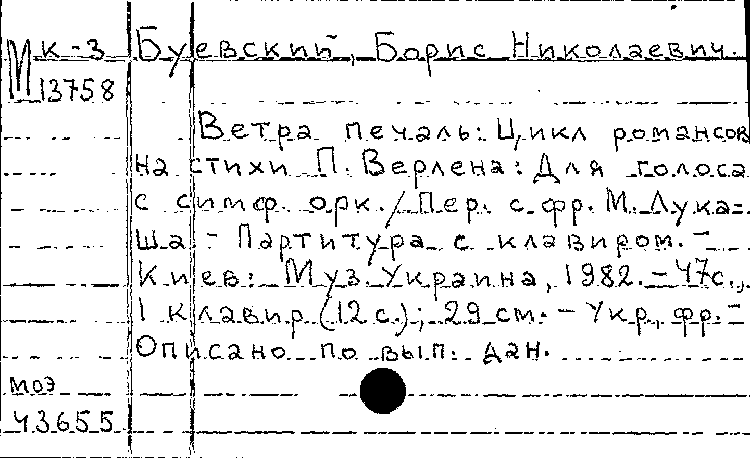 М к-3 Буевский, Борис Николаевич.
13758
Ветра печаль: Цикл романсов
на стихи П. Верлена: Для голоса
с симф. орк. / Пер. с фр. М. Лука-
ша. - Партитура с клавиром. -
Киев: Муз. Украина, 1982. - 47с.,
1 клавир (12 с.); 29 см. - Укр., фр. -
Описано по вып. дан.
МОЭ
43655